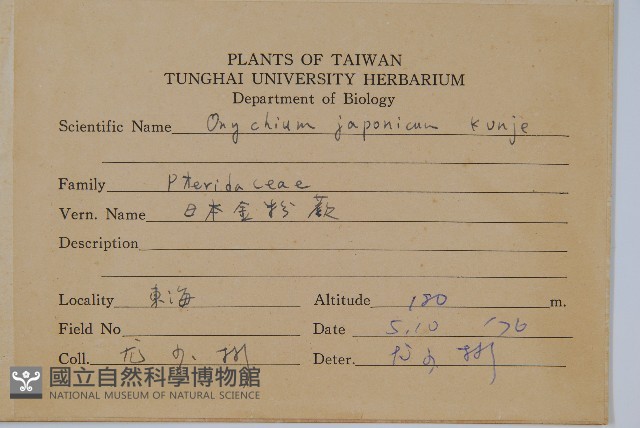 PLANTS OF TAIWAN
TUNGHAI UNIVERSITY HERBARIUM
Department of Biology
Scientific Name Onychium japonicum Kunje
Family Pteridaceae
Vern. Name 日本金粉蕨
Description
Locality 東海
Altitude 180 m.
Field No
Date 5.10 '76
Coll. 尤少彬
Deter. 尤少彬
國立自然科學博物館
NATIONAL MUSEUM OF NATURAL SCIENCE